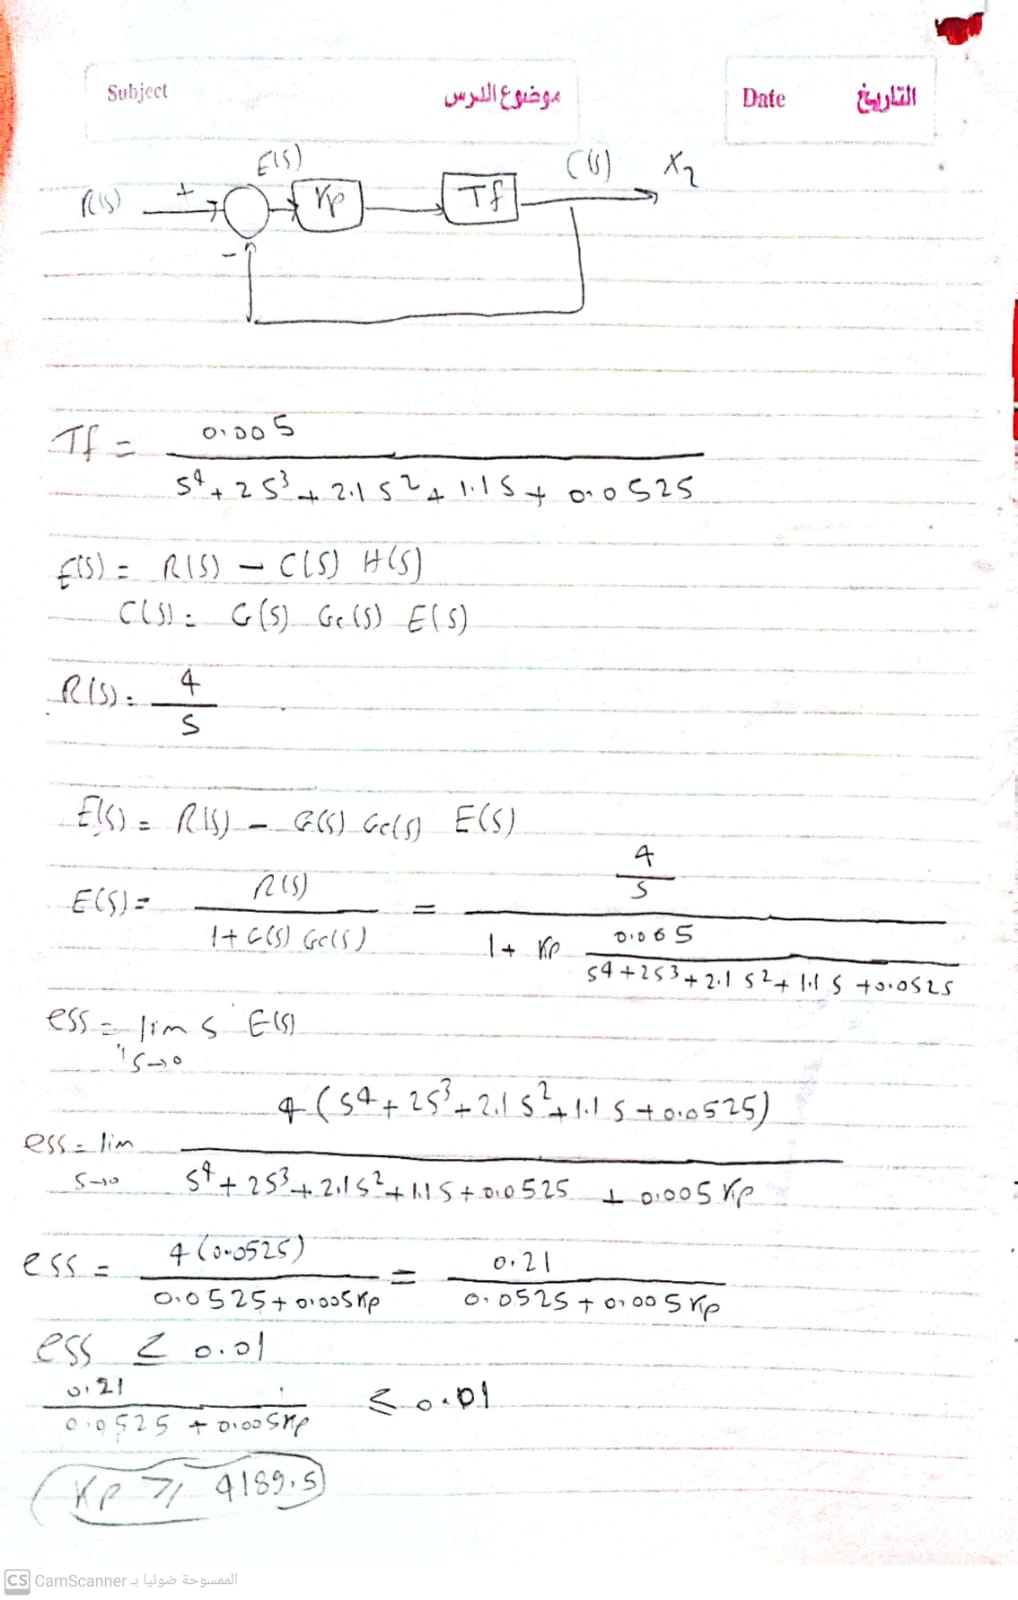 Subject موضوع الدرس Date التاريخ
R(s) + - E(s) Kp Tf C(s) X2
Tf = 0.005 / S^4 + 2S^3 + 2.1S^2 + 1.1S + 0.0525
E(S) = R(S) - C(S) H(S)
C(S) = G(S) Gc(S) E(S)
R(S) = 4 / S
E(S) = R(S) - G(S) Gc(S) E(S)
E(S) = R(S) / 1 + G(S) Gc(S) = 4/S / 1 + Kp 0.005 / S^4 + 2S^3 + 2.1S^2 + 1.1S + 0.0525
ess = lim S→0 S E(S)
ess = lim S→0 4(S^4 + 2S^3 + 2.1S^2 + 1.1S + 0.0525) / S^4 + 2S^3 + 2.1S^2 + 1.1S + 0.0525 + 0.005Kp
ess = 4(0.0525) / 0.0525 + 0.005Kp = 0.21 / 0.0525 + 0.005Kp
ess ≤ 0.01
0.21 / 0.0525 + 0.005Kp ≤ 0.01
Kp ≥ 4189.5
CS CamScanner الممسوحة ضوئيا بـ